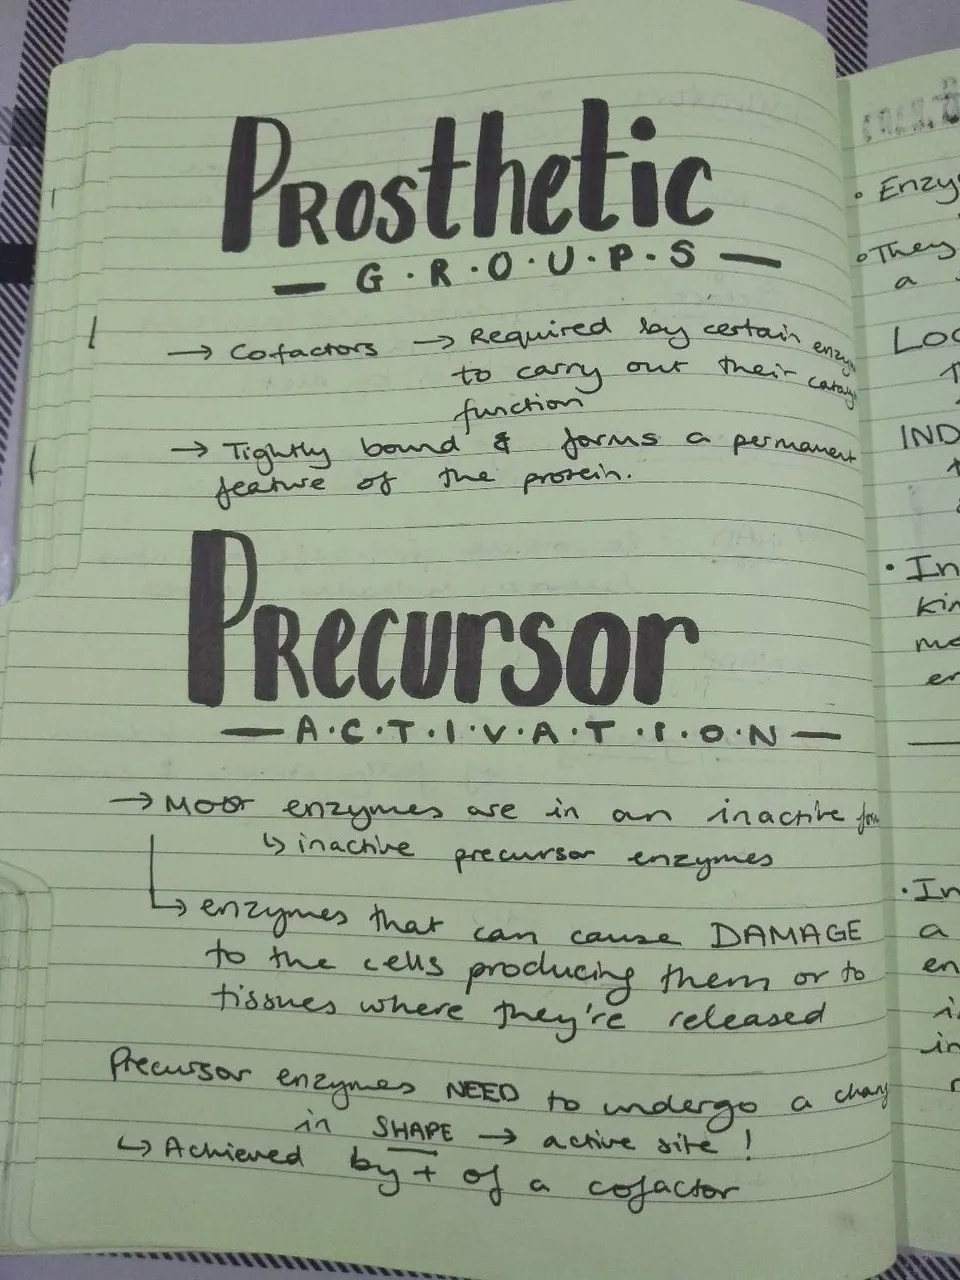 Prosthetic
— G.R.O.U.P.S —
→ Cofactors → Required by certain enzy
to carry out their catay
function
→ Tightly bound & forms a permanent
feature of the protein.
Precursor
— A.C.T.I.V.A.T.I.O.N —
→ Most enzymes are in an inactive form
↳ inactive precursor enzymes
↳ enzymes that can cause DAMAGE
to the cells producing them or to
tissues where they're released
Precursor enzymes NEED to undergo a chang
in SHAPE → active site!
↳ Achieved by + of a cofactor
• Enzy
• They
a
LOC
IND
• In
kin
mo
en
• In
a
en
in